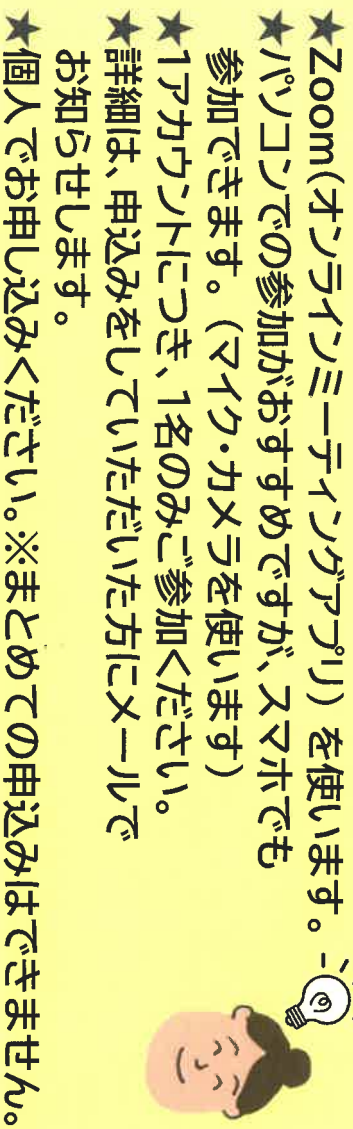 ★Zoom(オンラインミーティングアプリ)を使います。
★パソコンでの参加がおすすめですが、スマホでも
参加できます。(マイク・カメラを使います)
★1アカウントにつき、1名のみご参加ください。
★詳細は、申込みをしていただいた方にメールで
お知らせします。
★個人でお申し込みください。※まとめての申込みはできません。